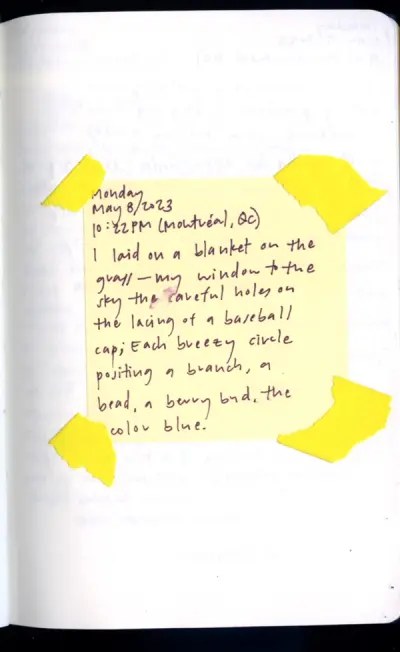 Monday
May 8/2023
10:22 PM (Montréal, QC)
I laid on a blanket on the
grass — my window to the
sky the careful holes on
the lacing of a baseball
cap; Each breezy circle
positing a branch, a
bead, a berry bud, the
color blue.